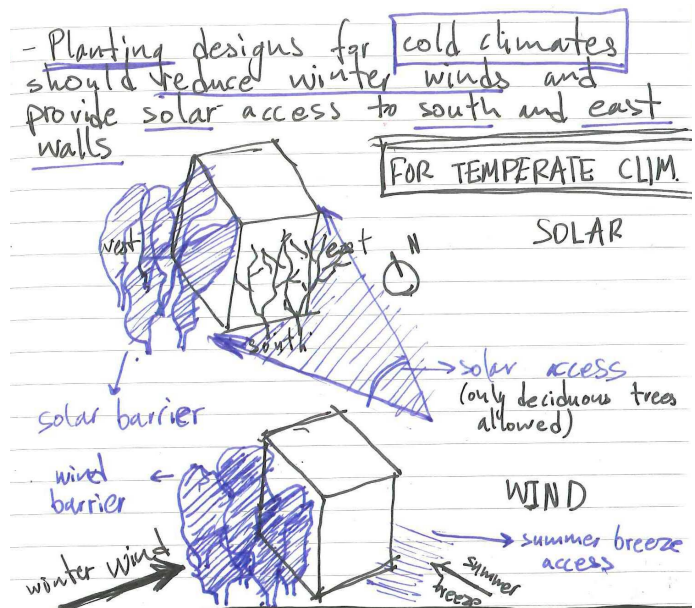 - Planting designs for cold climates
should reduce winter winds and
provide solar access to south and east
walls
FOR TEMPERATE CLIM.
SOLAR
west
east
N
south
solar access
(only deciduous trees
allowed)
solar barrier
wind
barrier
WIND
summer breeze
access
winter wind
summer
breeze